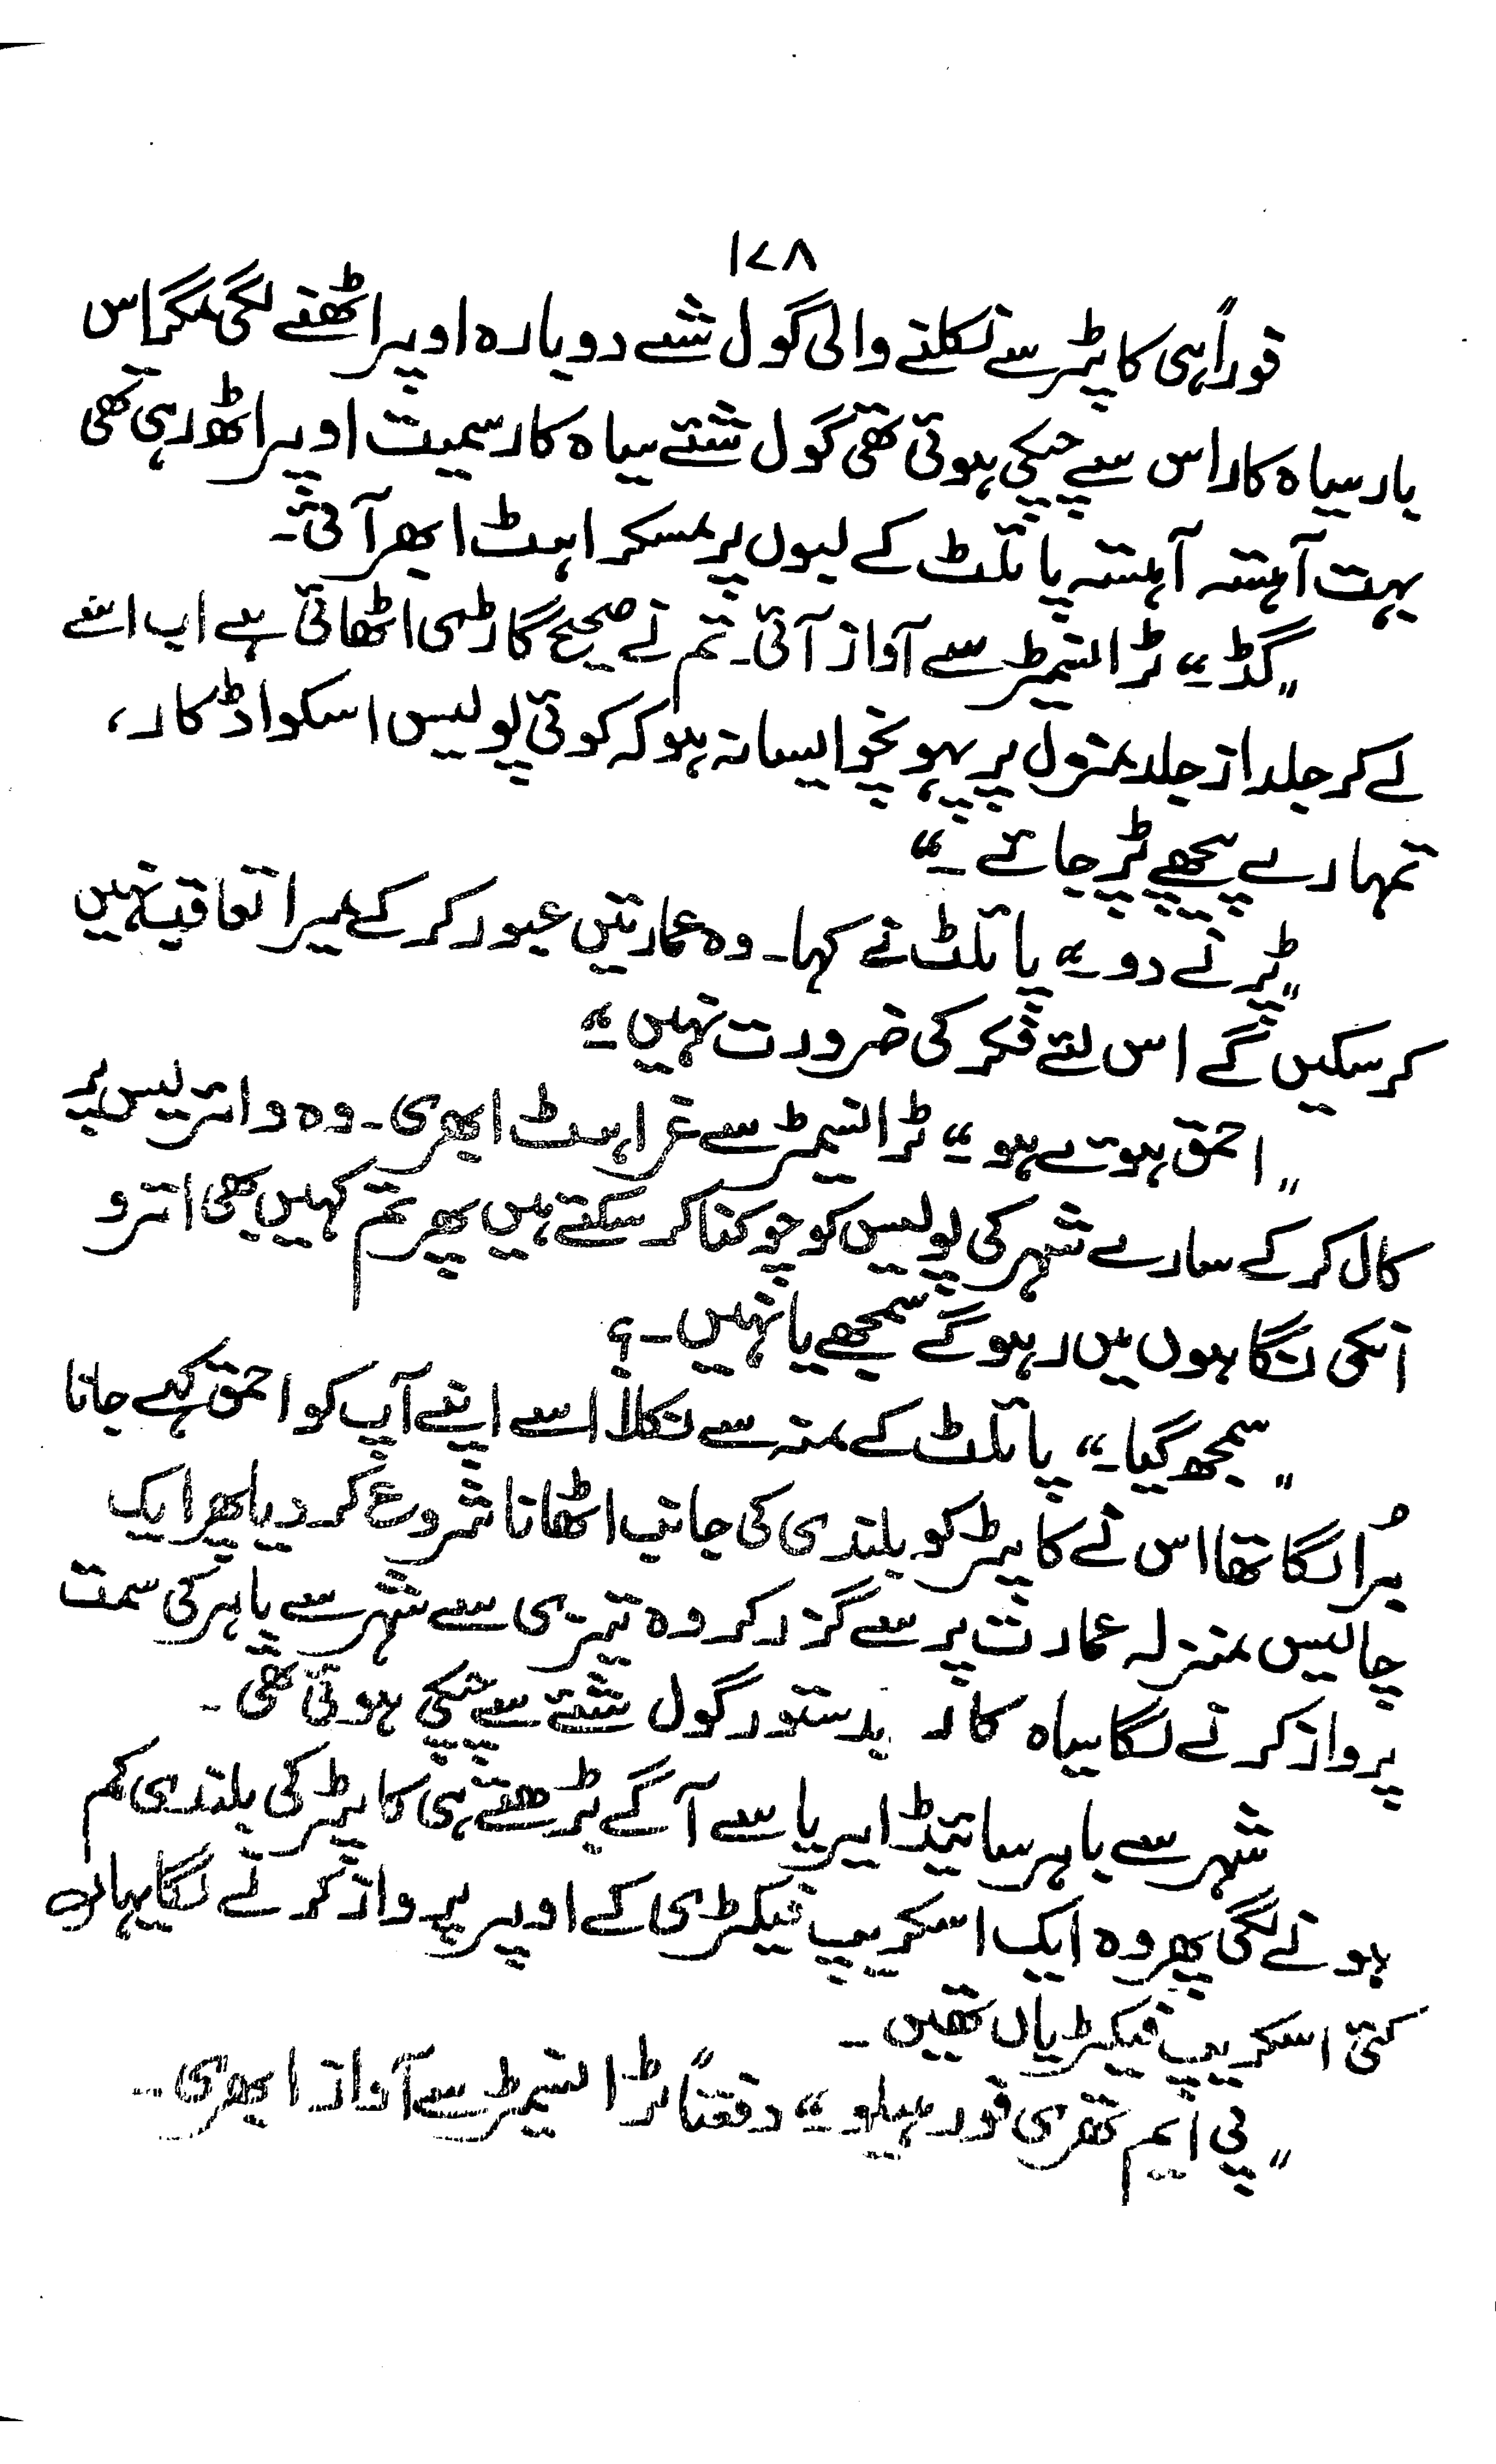 ۱۷۸
فوراً ہی کاپٹر سے نکلنے والی گول شے دوبارہ اوپر اٹھنے لگی مگر اس
بار سیاہ کار اس سے چپکی ہوئی تھی گول شئے سیاہ کار سمیت اوپر اٹھ رہی تھی
بہت آہستہ آہستہ پائلٹ کے لبوں پر مسکراہٹ ابھر آئی۔
"گڈ۔" ٹرانسمیٹر سے آواز آئی۔ تم نے صحیح گاڑی اٹھائی ہے اب اسے
لے کر جلد از جلد منزل پر پہونچو ایسا نہ ہو کہ کوئی پولیس اسکواڈ کار،
تمہارے پیچھے پڑ جائے۔"
"پڑنے دو۔" پائلٹ نے کہا۔ وہ عمارتیں عبور کر کے میرا تعاقب نہیں
کر سکیں گے اس لئے فکر کی ضرورت نہیں۔"
"احمق ہوتے ہو۔" ٹرانسمیٹر سے غراہٹ ابھری۔ وہ وائرلیس پر
کال کر کے سارے شہر کی پولیس کو چوکنا کر سکتے ہیں پھر تم کہیں بھی اترو
انکی نگاہوں میں رہو گے سمجھے یا نہیں۔؟
"سمجھ گیا۔" پائلٹ کے منہ سے نکلا اسے اپنے آپ کو احمق کہے جانا
بُرا لگا تھا اس نے کاپٹر کو بلندی کی جانب اٹھانا شروع کر دیا پھر ایک
چالیس منزلہ عمارت پر سے گزر کر وہ تیزی سے شہر سے باہر کی سمت
پرواز کرنے لگا سیاہ کار بدستور گول شئے سے چپکی ہوئی تھی۔
شہر سے باہر سائیڈ ایریا سے آگے بڑھتے ہی کاپٹر کی بلندی کم
ہونے لگی پھر وہ ایک اسکریپ فیکٹری کے اوپر پرواز کرنے لگا یہاں
کئی اسکریپ فیکٹریاں تھیں۔
"پی ایم تھری فور ہیلو۔" دفعتاً ٹرانسمیٹر سے آواز ابھری۔